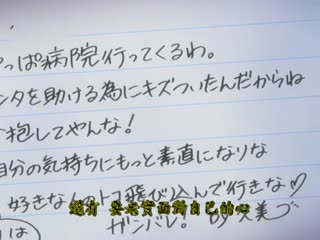 っぱ病院行ってくるわ。
ンタを助ける為にキズついたんだからね
抱してやんな！
自分の気持ちにもっと素直になりな
好きな人のトコ飛び込んで行きな♡
ガンバレ。
還有 要老實面對自己的心
は